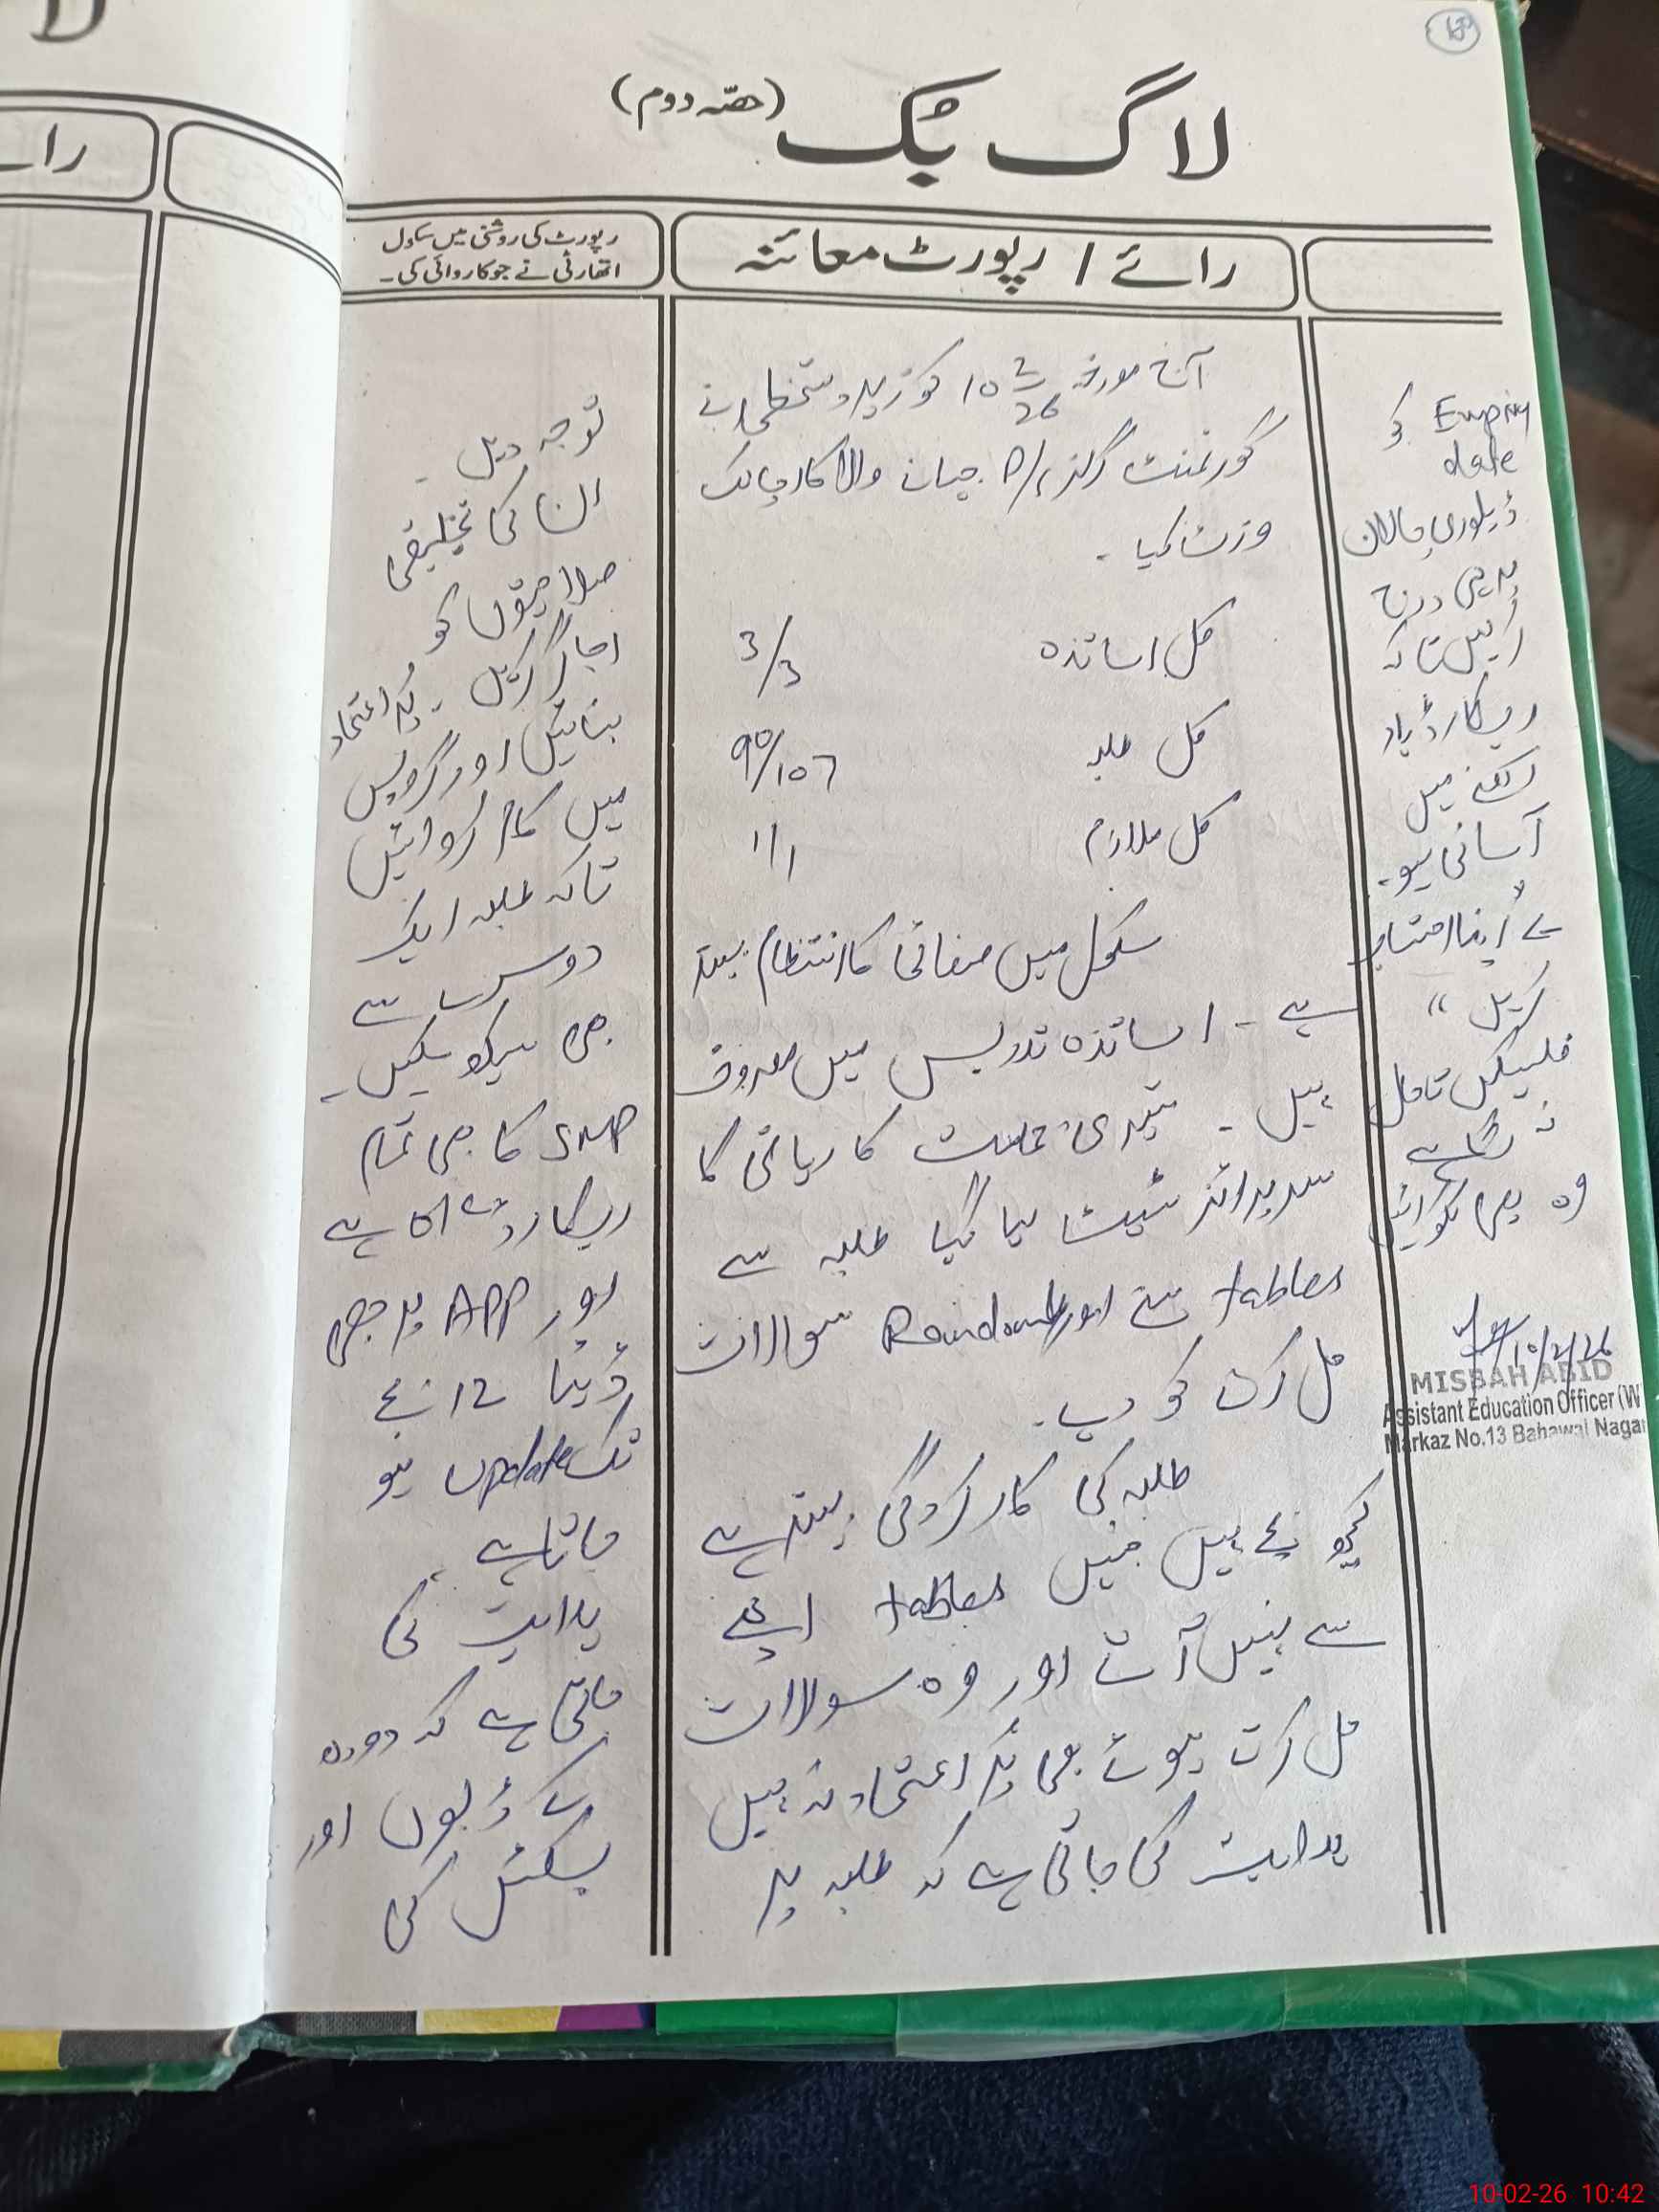 لاگ بک (حصہ دوم)
رائے / رپورٹ معائنہ
آج مورخہ 10 2/26 کو زیر دستخطی نے
گورنمنٹ گرلز P/S والا کار چانک
وزٹ کیا ۔
کل اساتذہ 3/3
کل طلبہ 90/107
کل ملازم 1/1
سکول میں صفائی کا انتظام بہتر
ہے ۔ اساتذہ تدریس میں مصروف
ہیں ۔ تیسری جماعت کا ریاضی کا
سرپرائز ٹیسٹ لیا گیا طلبہ سے
tables سنے اور Randomly سوالات
حل کرنے کو دیے ۔
طلبہ کی کارکردگی بہتر ہے
کچھ بچے ہیں جنہیں tables اچھے
سے نہیں آتے اور وہ سوالات
حل کرتے ہوئے بھی پر اعتماد نہ ہیں
ہدایت کی جاتی ہے کہ طلبہ پر
رپورٹ کی روشنی میں سکول
اتھارٹی نے جو کاروائی کی۔
توجہ دیں ۔
ان کی تخلیقی
صلاحیتوں کو
اجاگر کریں ۔ پر اعتماد
بنائیں اور گروپس
میں کام کروائیں
تاکہ طلبہ ایک
دوسرے سے
بھی سیکھ سکیں ۔
کا بھی تمام
ریکارڈ ہے
اور APP پر بھی
ڈیٹا 12 بجے
تک update ہو
جاتا ہے ،
ہدایت کی
جاتی ہے کہ دودھ
کے ڈبوں اور
بسکٹس کی
Expiry کو
date
ڈیلوری چالان
پر بھی درج
کریں تاکہ
ریکارڈ یاد
رکھنے میں
آسانی ہو۔
اپنا احتساب
کریں "
فلیکس تاحال
نہ لگا ہے
وہ بھی لگوائیں
10/2/26
MISBAH ABID
Assistant Education Officer (W
Markaz No.13 Bahawal Nagar
رائے
10-02-26 10:42